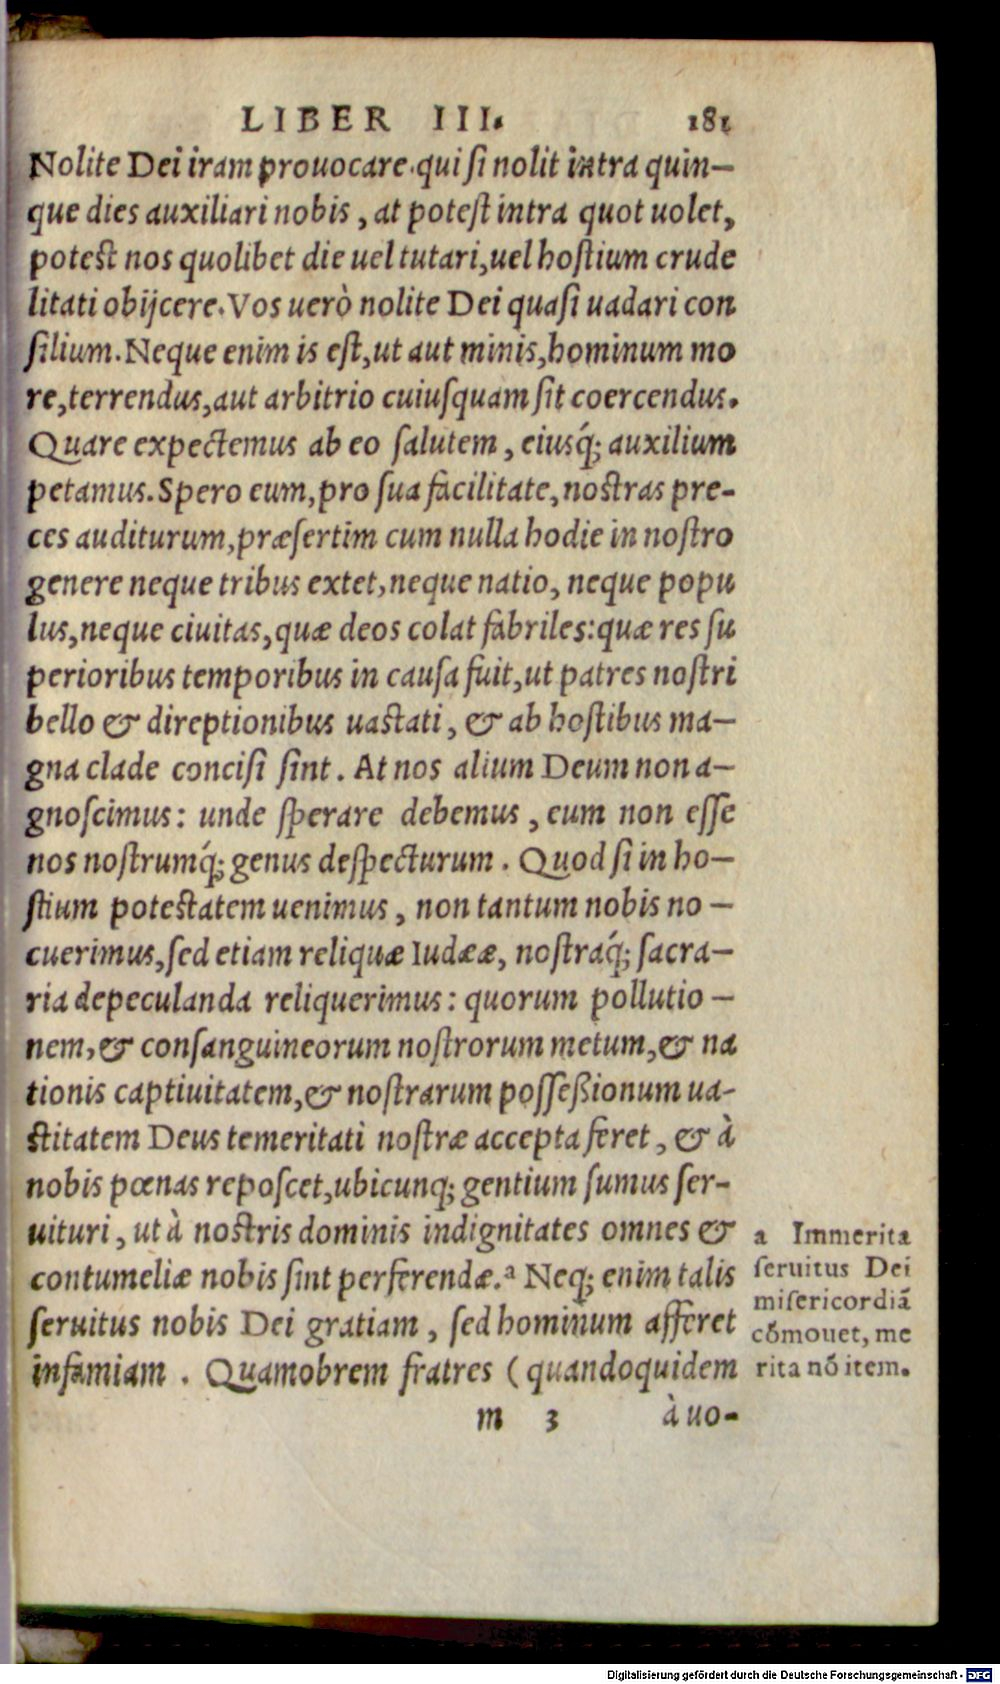 LIBER III. 181
Nolite Dei iram prouocare. qui si nolit intra quin–
que dies auxiliari nobis, at potest intra quot uolet,
potest nos quolibet die uel tutari, uel hostium crude
litati obijcere. Vos uerò nolite Dei quasi uadari con
silium. Neque enim is est, ut aut minis, hominum mo
re, terrendus, aut arbitrio cuiusquam sit coercendus.
Quare expectemus ab eo salutem, eiusq́; auxilium
petamus. Spero eum, pro sua facilitate, nostras pre-
ces auditurum, præsertim cum nulla hodie in nostro
genere neque tribus extet, neque natio, neque popu
lus, neque ciuitas, quæ deos colat fabriles: quæ res su
perioribus temporibus in causa fuit, ut patres nostri
bello & direptionibus uastati, & ab hostibus ma–
gna clade concisi sint. At nos alium Deum non a–
gnoscimus: unde sperare debemus, eum non esse
nos nostrumq́; genus despecturum. Quod si in ho–
stium potestatem uenimus, non tantum nobis no–
cuerimus, sed etiam reliquæ Iudææ, nostraq́; sacra–
ria depeculanda reliquerimus: quorum pollutio–
nem, & consanguineorum nostrorum metum, & na
tionis captiuitatem, & nostrarum posseßionum ua-
stitatem Deus temeritati nostræ accepta feret, & à
nobis pœnas reposcet, ubicunq; gentium sumus ser-
uituri, ut à nostris dominis indignitates omnes &
contumeliæ nobis sint perferendæ.ᵃ Neq; enim talis
seruitus nobis Dei gratiam, sed hominum afferet
infamiam. Quamobrem fratres (quandoquidem
m 3 à uo-
a Immerita
seruitus Dei
misericordiã
cõmouet, me
rita nõ item.
Digitalisierung gefördert durch die Deutsche Forschungsgemeinschaft - DFG